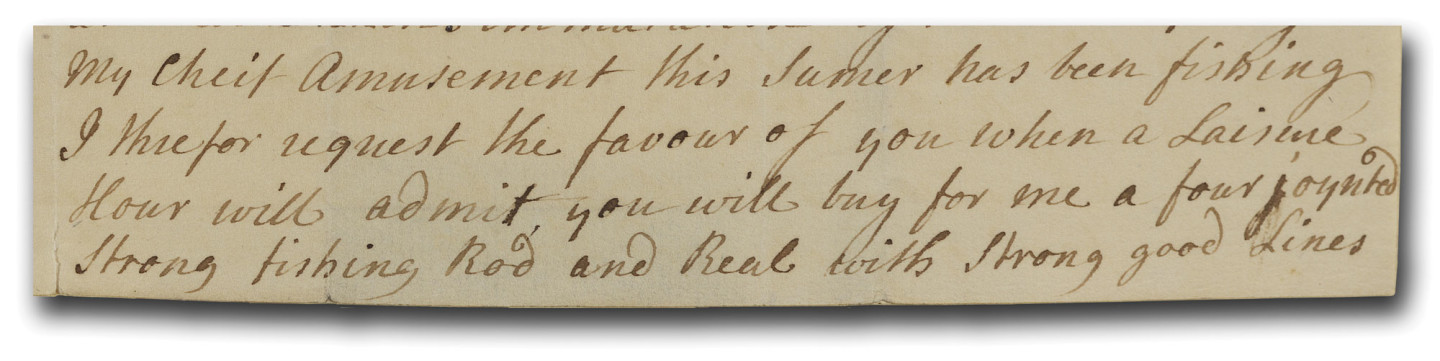 My Cheif Amusement this Sumer has been fishing
I threfor request the favour of you when a Laisure
Hour will admit, you will buy for me a four joynted
Strong fishing Rod and Real with Strong good Lines